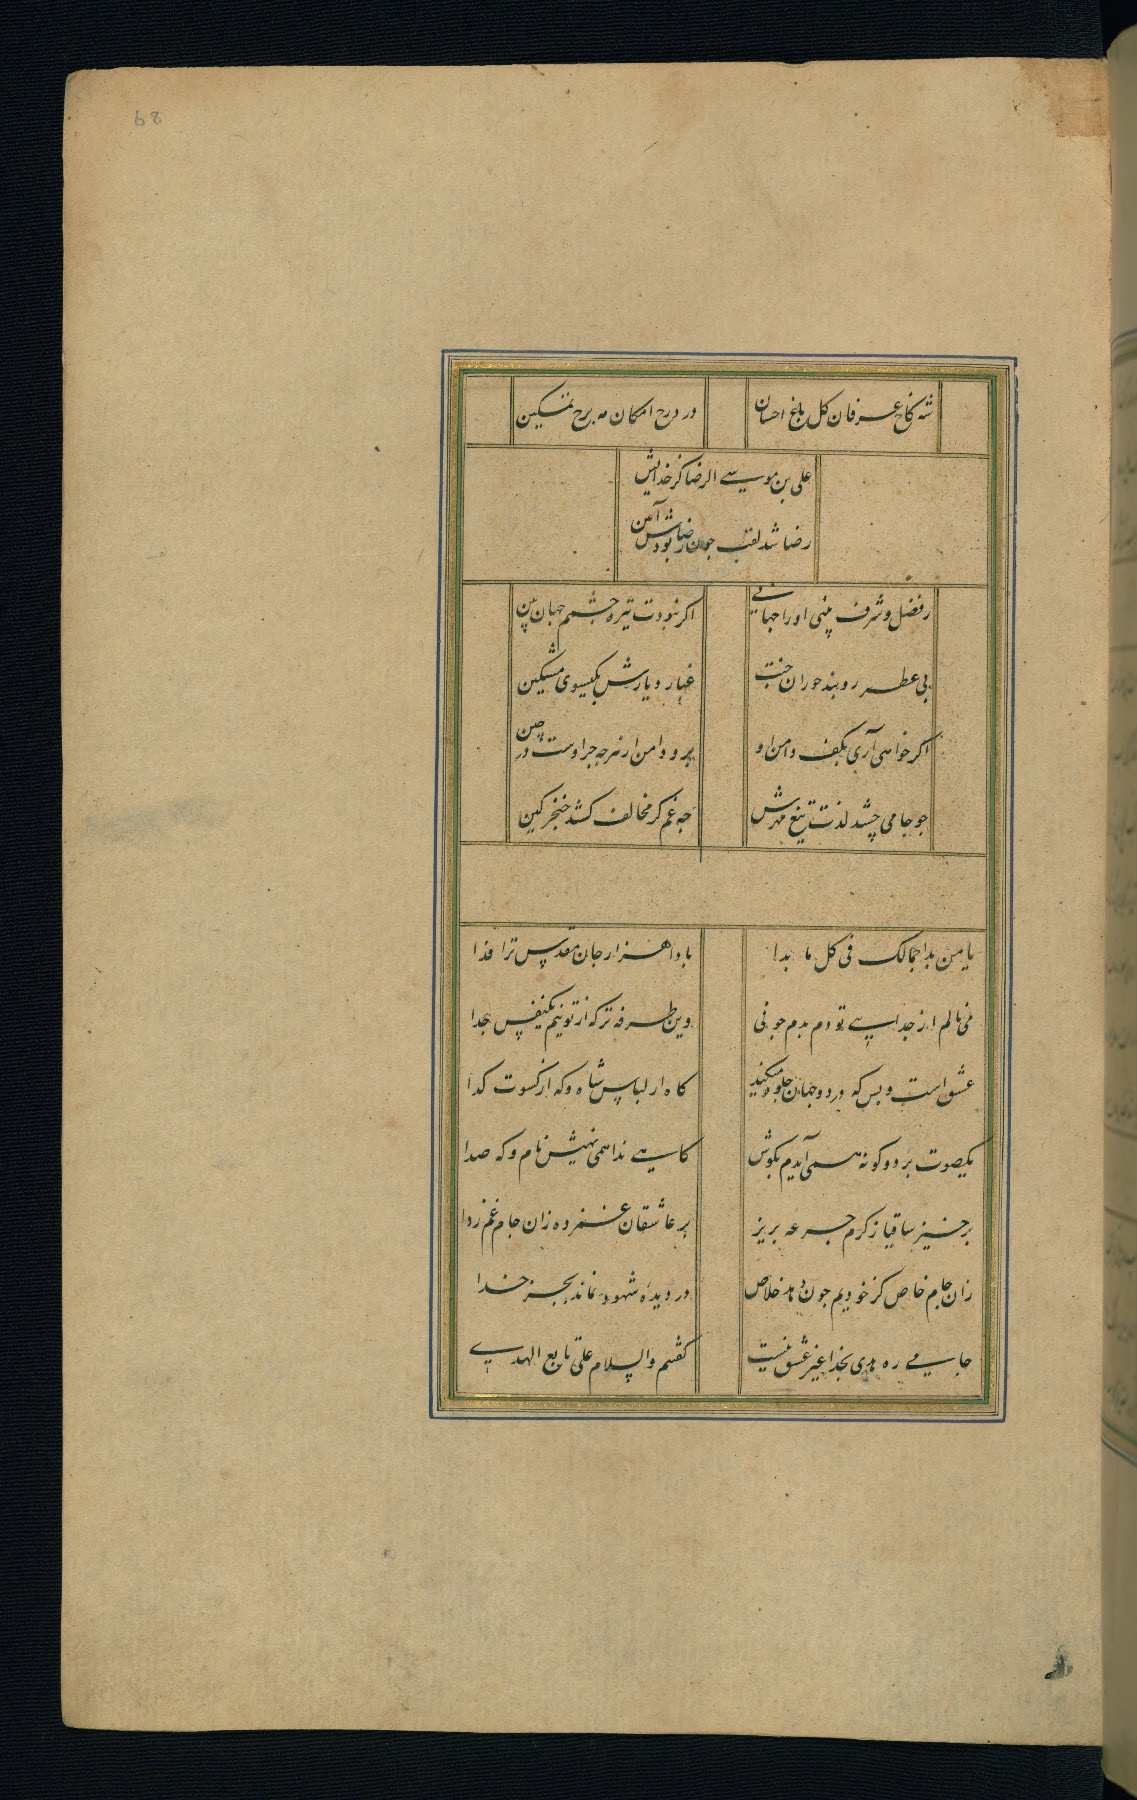 68
شه کاخ عرفان کل باغ احسان
در درج امکان مه برج تمکین
علی بن موسی الرضا کز خدایش
رضا شد لقب چون رضا بودش آیین
ز فضل و شرف بینی او را جهانی
اکر نبودت تیره چشم جهان بین
پی عطر روبند حوران جنت
غبار دیارش بکیسوی مشکین
اکر خواهی آری بکف دامن او
برو دامن از هر چه جز اوست در چین
چو جامی چشد لذت تیغ مهرش
چه غم کر مخالف کشد خنجر کین
یا من بدا جمالک فی کل ما بدا
بادا هزار جان مقدس ترا فدا
می نالم از جدایی تو دم بدم چو نی
وین طرفه تر که از تو نیم یکنفس جدا
عشق است و بس که در دو جهان جلوه میکند
کاه از لباس شاه و که از کسوت کدا
یکصوت بر دو کونه همی آیدم بکوش
کاهی ندا همی نهیش نام و که صدا
برخیز ساقیا ز کرم جرعه بریز
بر عاشقان غمزده زان جام غم زدا
زان جام خاص کز خودیم چون دهد خلاص
در دیده شهود نماند بجز خدا
جامی ره هدی بخدا غیر عشق نیست
کفتیم والسلام علی تابع الهدی